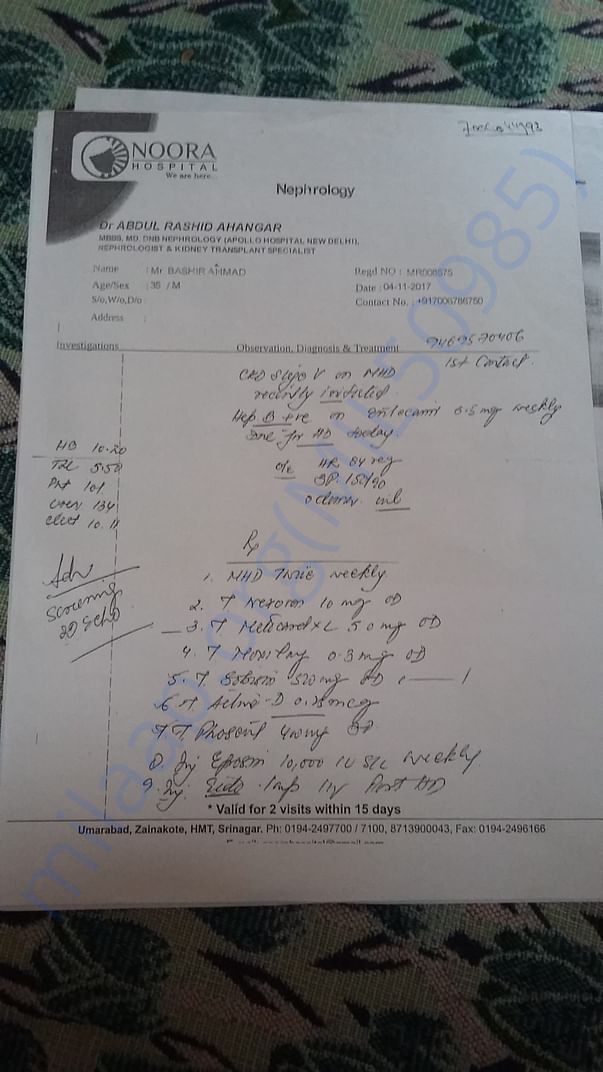 NOORA
HOSPITAL
We are here...
Nephrology
Dr ABDUL RASHID AHANGAR
MBBS, MD, DNB NEPHROLOGY (APOLLO HOSPITAL NEW DELHI),
NEPHROLOGIST & KIDNEY TRANSPLANT SPECIALIST
Name : Mr. BASHIR AHMAD Regd NO : MR008575
Age/Sex : 35 / M Date : 04-11-2017
S/o,W/o,D/o : Contact No. : +917006786760
Address :
9469570406
Investigations Observation, Diagnosis & Treatment
1st Contact
CKD Stage V on MHD
recently
Hep B +ve on 0.5 mg weekly
Due for HD today.
HB 10.20
TLC 5.50
Plt 101
urea 134
creat 10.11
o/e HR 84 reg
BP. 150/90
oedema nil
Rx
Adv
Screening
2D Echo
1. MHD Twice weekly
2. T 10 mg OD
3. T Metocard XL 50 mg OD
4. T 0.3 mg OD
5. T 500 mg OD
6. T D 0.25 mcg
7. T 400 mg
8. Inj 10,000 IU S/c weekly
9. Inj. 1 amp IV Post HD
* Valid for 2 visits within 15 days
Umarabad, Zainakote, HMT, Srinagar. Ph: 0194-2497700 / 7100, 8713900043, Fax: 0194-2496166
milaap.org(MIL50985)